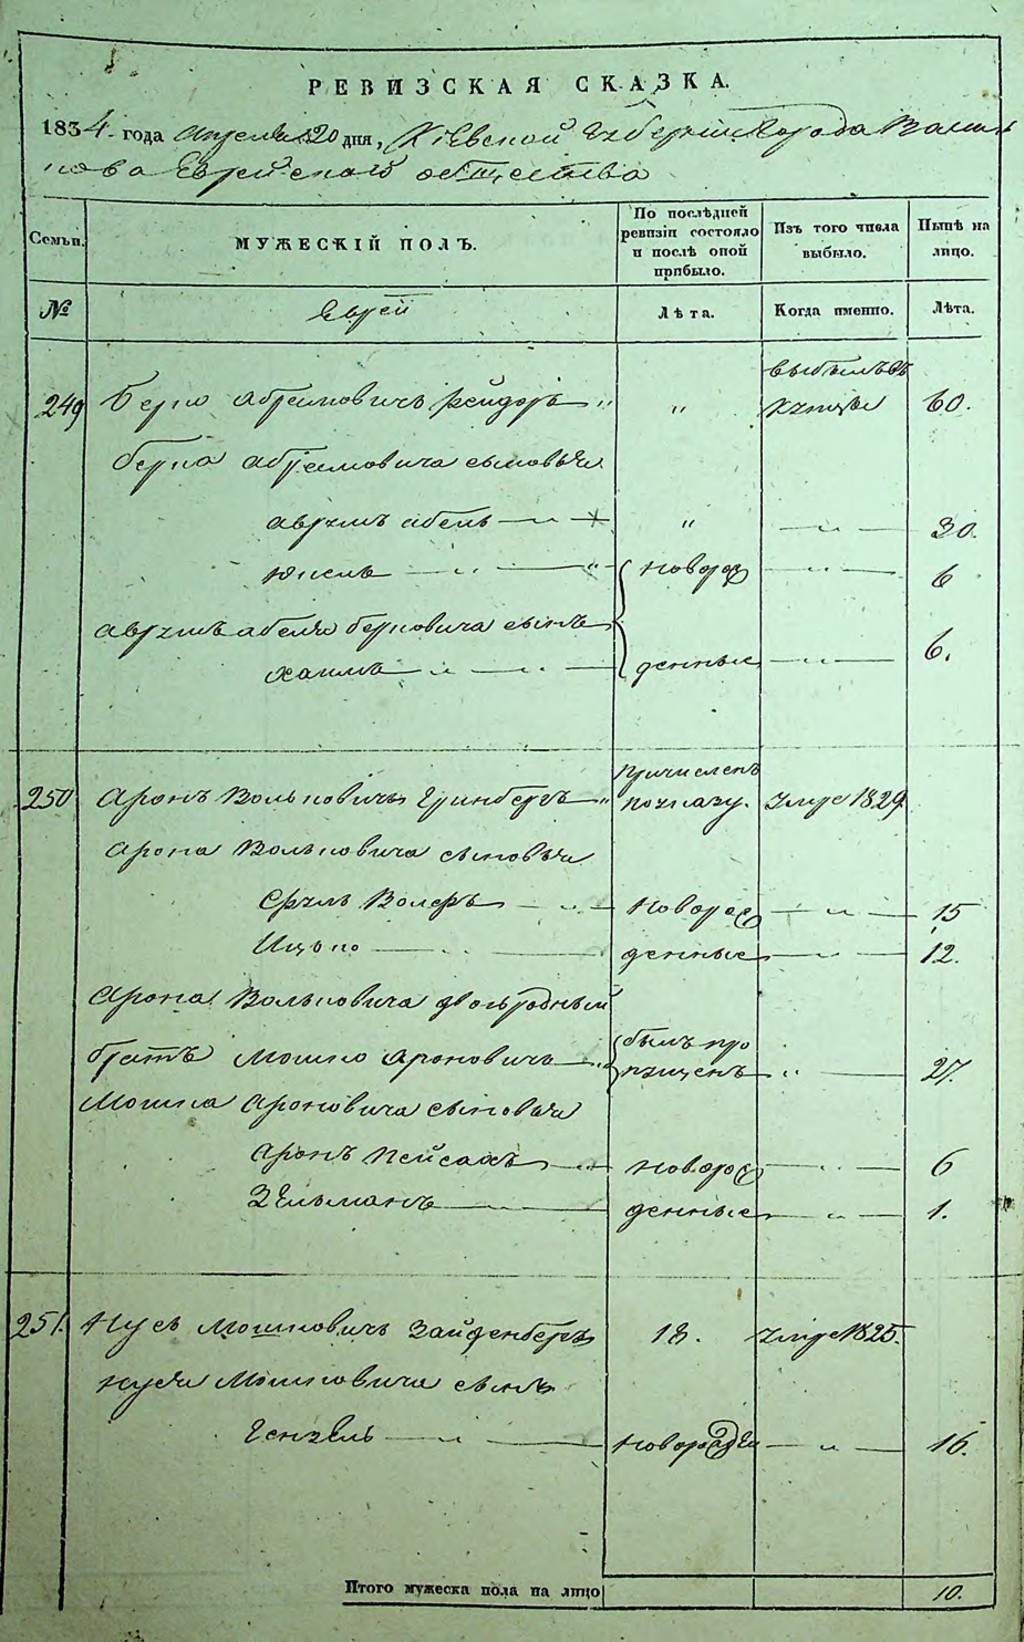 РЕВИЗСКАЯ СКАЗКА.
1834 года Апреля 20 дня, Кіевской Губерніи Города Василь
кова Еврейскаго общества
Семьи. МУЖЕСКІЙ ПОЛЪ. По послѣдней ревизіи состояло и послѣ оной прибыло. Изъ того числа выбыло. Нынѣ на лицо.
№ Еврей Лѣта. Когда именно. Лѣта.
249 Берко Абрамовичъ „ „ выбылъ въ купцы 60.
Берка Абрамовича сыновья
Аврумъ Абель — „ — „ — „ — 30.
Юкель — „ — „ новорож — „ — 6
Аврумъ Абеля Берковича сынъ
Хаимъ — „ — „ — денные — 6.
250 Аронъ Вольковичъ Гринбергъ „ причисленъ по указу. умре 1829.
Арона Вольковича сыновья
Сруль Волфъ — „ — новорож — „ — 15
Ицко — денные — „ — 12.
Арона Вольковича двоюродный
братъ Мошко Ароновичъ — „ былъ про пущенъ „ — 27.
Мошка Ароновича сыновья
Аронъ Пейсахъ — „ новорож — „ — 6
Зельманъ — „ — денные — „ — 1.
251. Нусь Мошковичъ Зайденбергъ 18. умре 1825.
Нуся Мошковича сынъ
— „ — новорожден — „ — 16.
Итого мужеска пола на лицо 10.